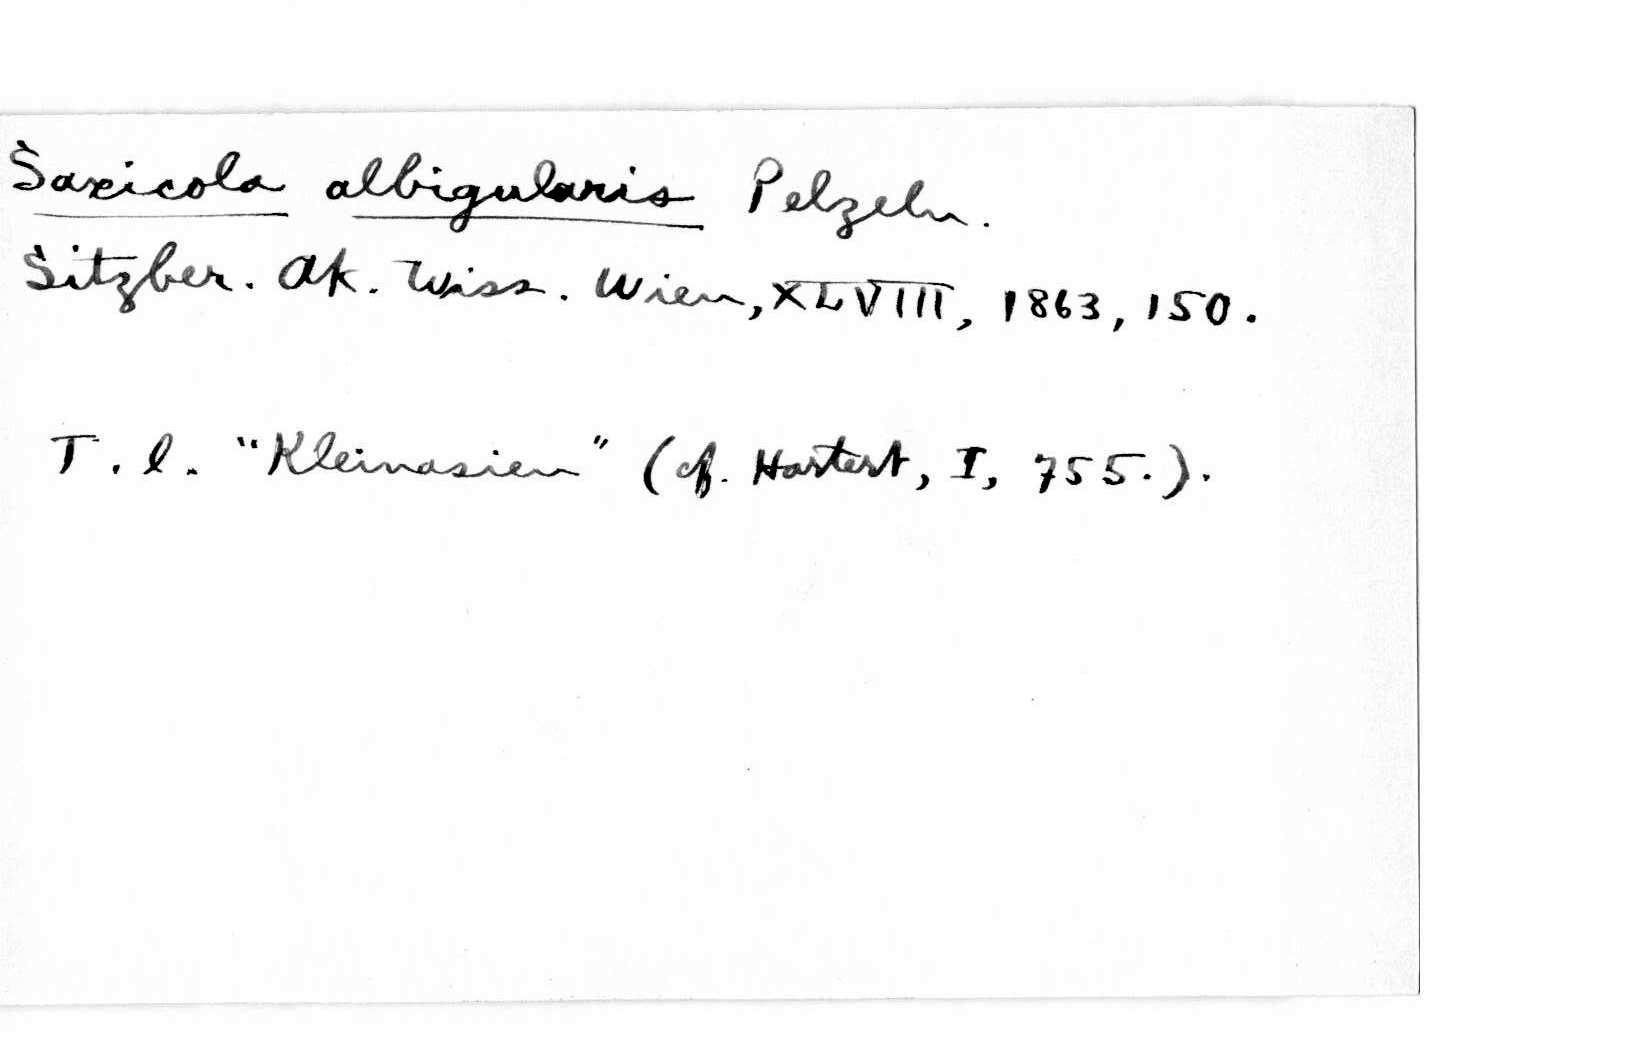 Saxicola albigularis Pelzeln.
Sitzber. Ak. Wiss. Wien, XLVIII, 1863, 150.
T. l. "Kleinasien" (cf. Hartert, I, 755.).